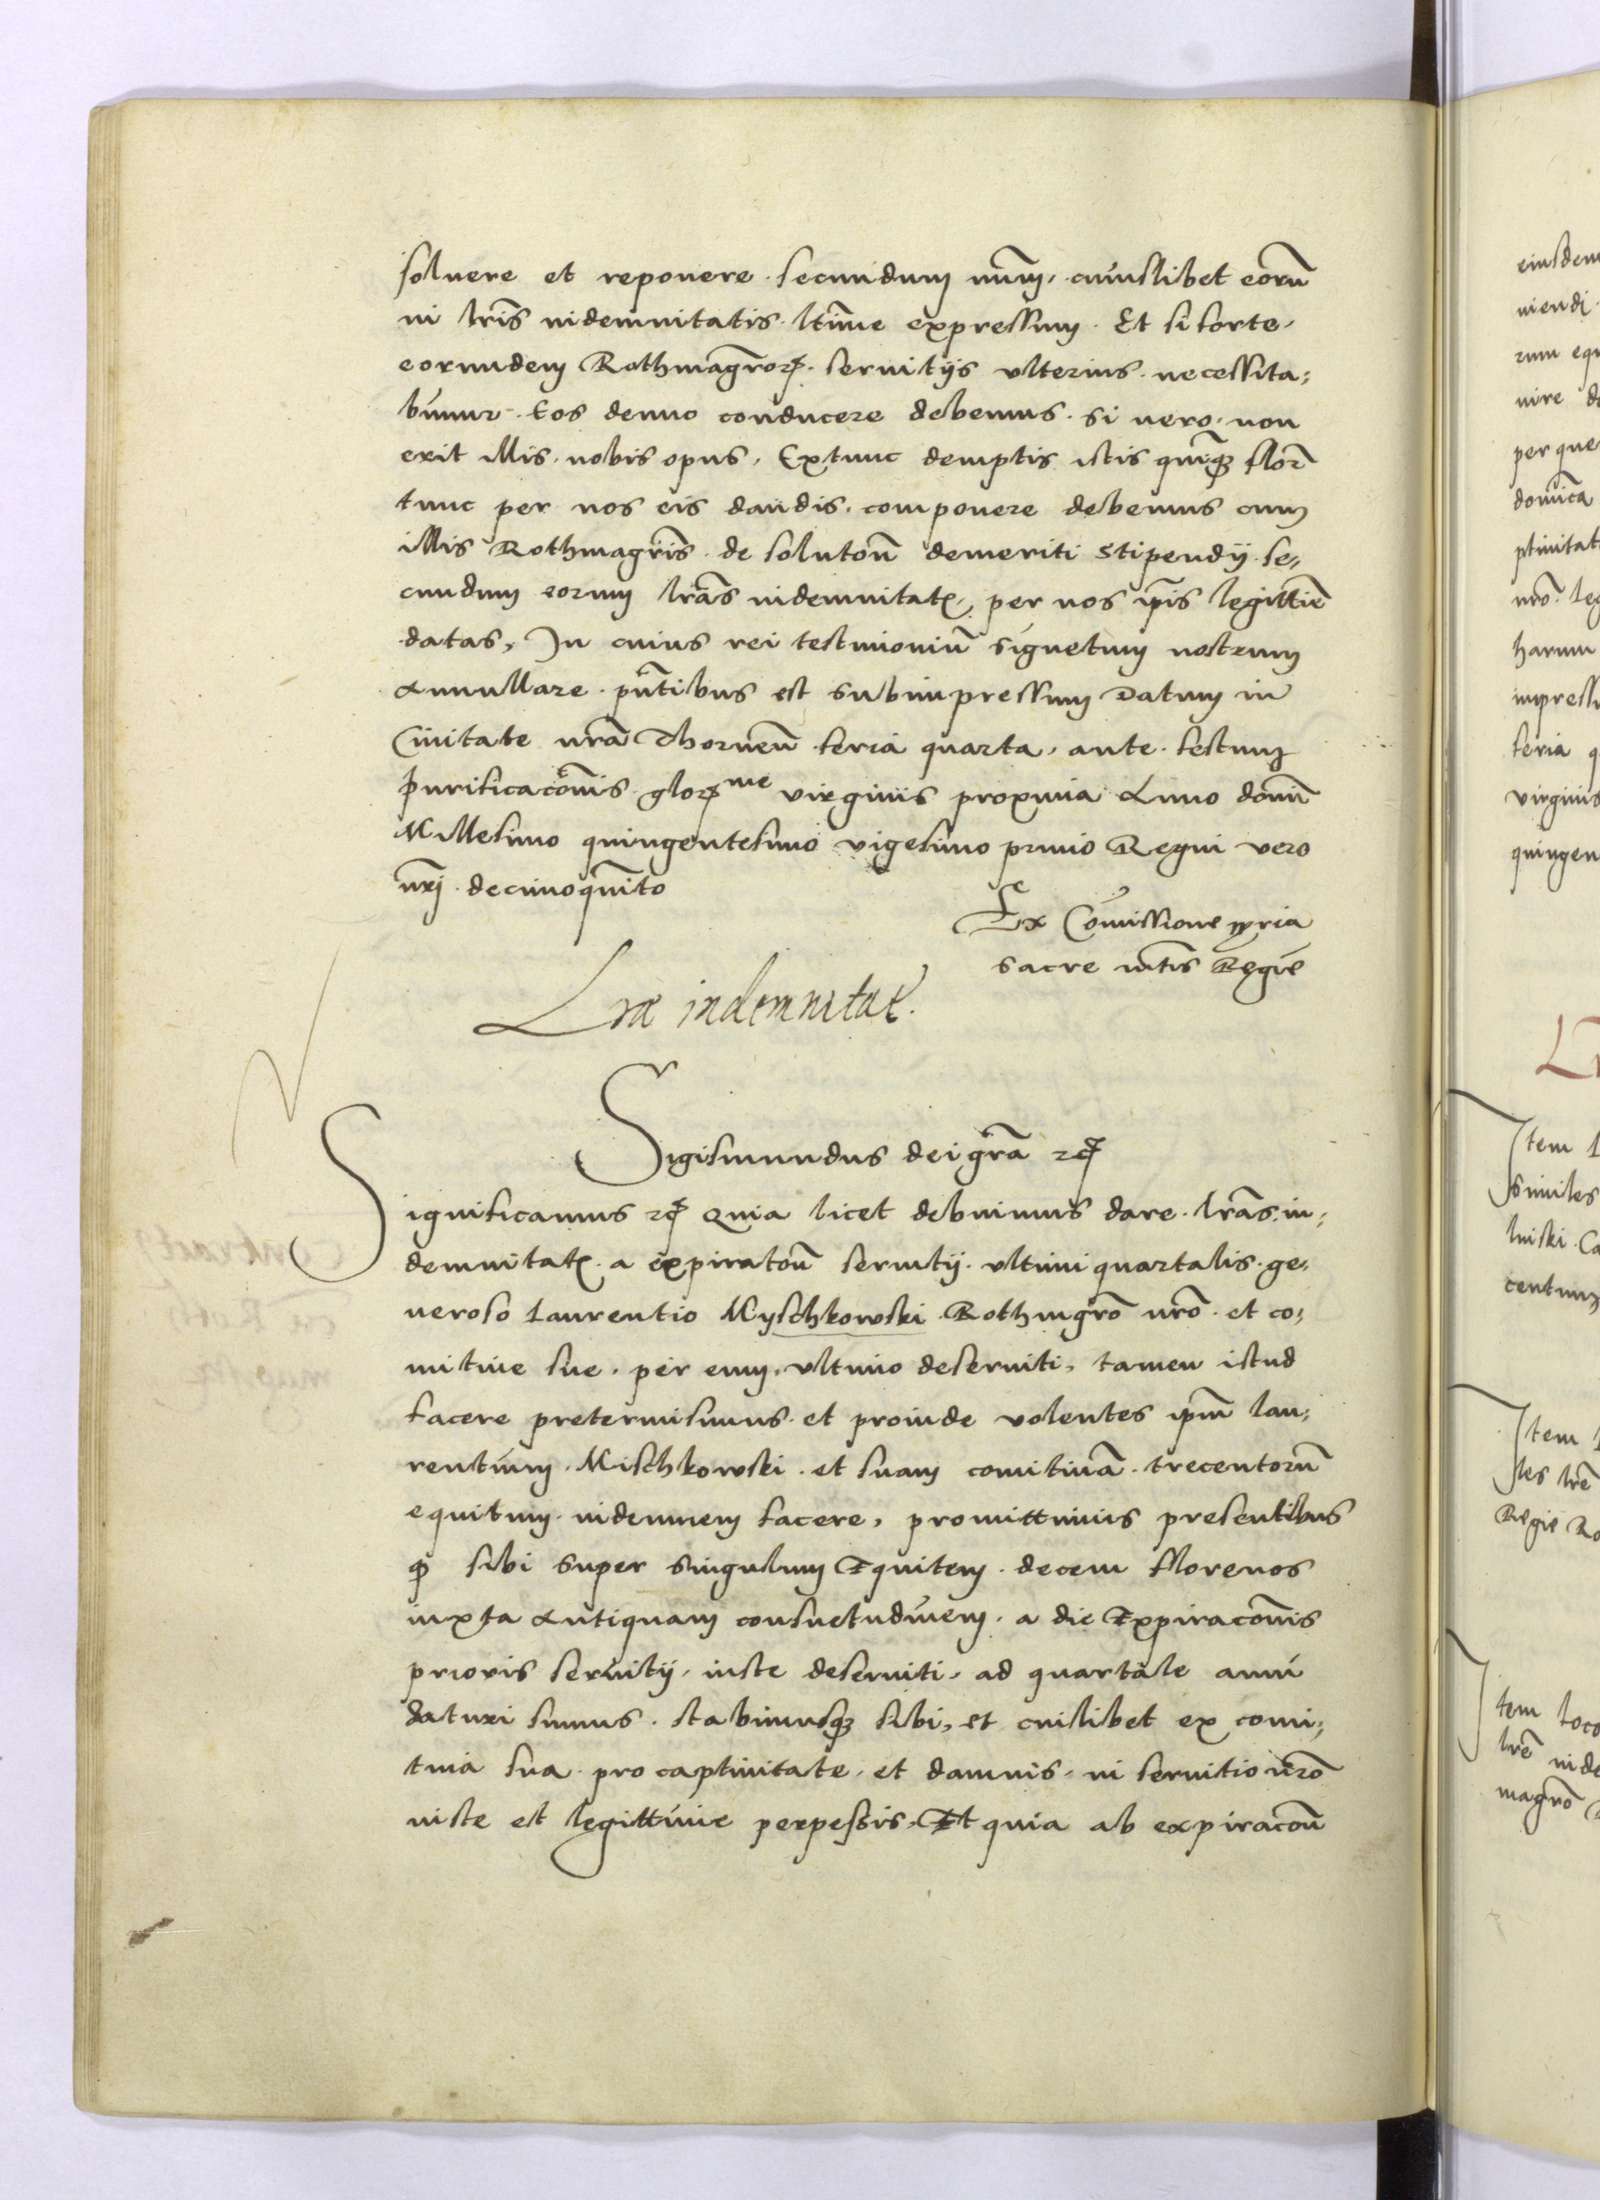 soluere et reponere secundum nrm̄ cuiuslibet eorū
in lrīs indemnitatis ltīme expressum. Et si forte
eorundem Rothmagrōrꝝ seruitijs ulterius necessita⸗
bimur Eos denuo conducere debemus. si uero non
erit illis nobis opus, Extunc demptis istis quīqꝫ flor̄
tunc per nos eis dandis, componere debemus cum
illis Rothmagrīs de solutoūn demeriti stipendij se⸗
cundum eorum lrās indemnitatꝭ per nos ip̄is legittiē
datas, In cuius rei testimoniū signetum nostrum
Annullare pn̄tibus est subimpressum Datum in
Ciuitate nrā Thorueñ feria quarta, ante festum
Purificacōnis glorme virginis proxima Anno domī
Millesimo quingentesimo vigesimo primo Regni vero
nrj decimoqnīto
Ex Comissione ꝓpria
sacre mtīs Regie
Lrae indemnitatꝭ.
Sigismundus dei grā ⁊cꝭ
Significamus ⁊cꝭ Quia licet debuimus dare lrās in⸗
demnitatꝭ a expiratoūn seruitij ultimi quartalis ge⸗
neroso Laurentio Myschkowski Rothmgrō nrō et co⸗
mitiue sue per eum ultimo deseruiti, tamen istud
facere pretermisimus et proinde volentes ipm̄ lau⸗
rentium Mischkowski et suam comitiuā trecentorū
equitum indemnem facere, promittimus presentibus
ꝙ sibi super singulum Equitem decem florenos
iuxta Antiquam consuetudinem, a die Expiracōnis
prioris seruitij iuste deseruiti, ad quartale anni
daturi sumus. stabimusqꝫ sibi, et cuilibet ex comi⸗
tiua sua pro captiuitate et damnis in seruitio nrō
iuste et legittime perpessis, Et quia ab expiracoūn
eiusdem
niendi
rum equ
nire d
per que
domīca
ptiuitat
nrō leg
harum
impress
feria q
virginis
quingen
Item L
similes
centum
Item
les lrē
Regie Ro
Item
lrē inde
magrō